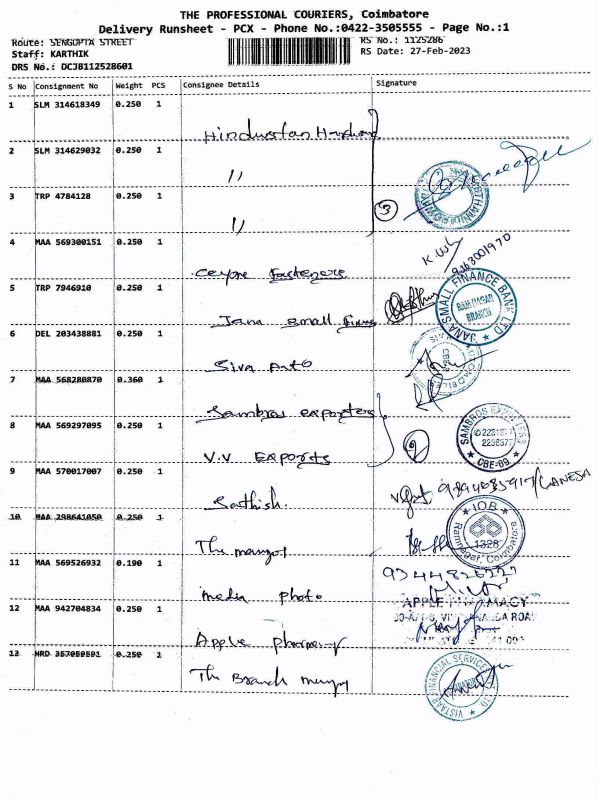 THE PROFESSIONAL COURIERS, Coimbatore
Delivery Runsheet - PCX - Phone No.:0422-3505555 - Page No.:1
Route: SENGUPTA STREET
RS No.: 1125286
Staff: KARTHIK
RS Date: 27-Feb-2023
DRS No.: DCJB112528601
S No Consignment No Weight PCS Consignee Details Signature
1 SLM 314618349 0.250 1
Hindustan
2 SLM 314629032 0.250 1
"
3 TRP 4784128 0.250 1
"
3
4 MAA 569300151 0.250 1
Fasteners
5 TRP 7946910 0.250 1
Jana Small
JANA SMALL FINANCE BANK LTD
RAM NAGAR
BRANCH
6 DEL 203438881 0.250 1
Siva Auto
7 MAA 568280870 0.360 1
Sambros exporters
8 MAA 569297095 0.250 1
V.V Exports
SAMBROS EXPORTERS
CBE-09
9 MAA 570017007 0.250 1
Sathish
10 MAA 298641050 0.250 1
The
IOB
Ramnagar, Coimbatore
1328
11 MAA 569526932 0.190 1
media photo
12 MAA 942704834 0.250 1
Apple pharmacy
APPLE PHARMACY
13 HRD 357059591 0.250 1
The Branch
VISTAAR FINANCIAL SERVICES